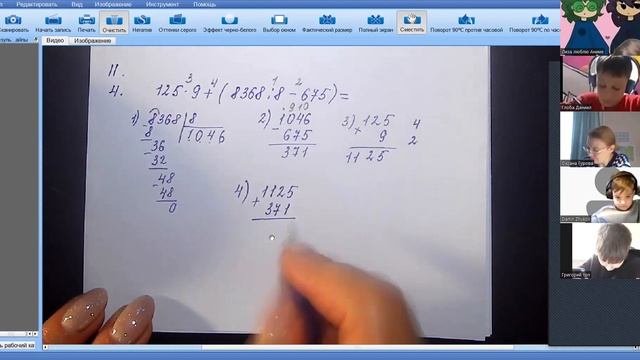 Редактировать Вид Изображение Инструмент Помощь
Сканировать Начать запись Печать Очистить Негатив Оттенки серого Эффект черно-белого Выбор окном Фактический размер Полный экран Сместить Поворот 90°С против часовой Поворот 90°С по часовой
Видео Изображение
11.
3 4 1 2
4. 125 · 9 + (8368 : 8 - 675) =
1) 8368 | 8
- 8 1046
- 36
32
- 48
48
0
2) . 9 10
- 1046
675
371
3) × 125 4
9 2
1125
4) + 1125
371
Лиза люблю Аниме
Глоба Даниил
Оксана Гурова
Григорий
рабочий ка